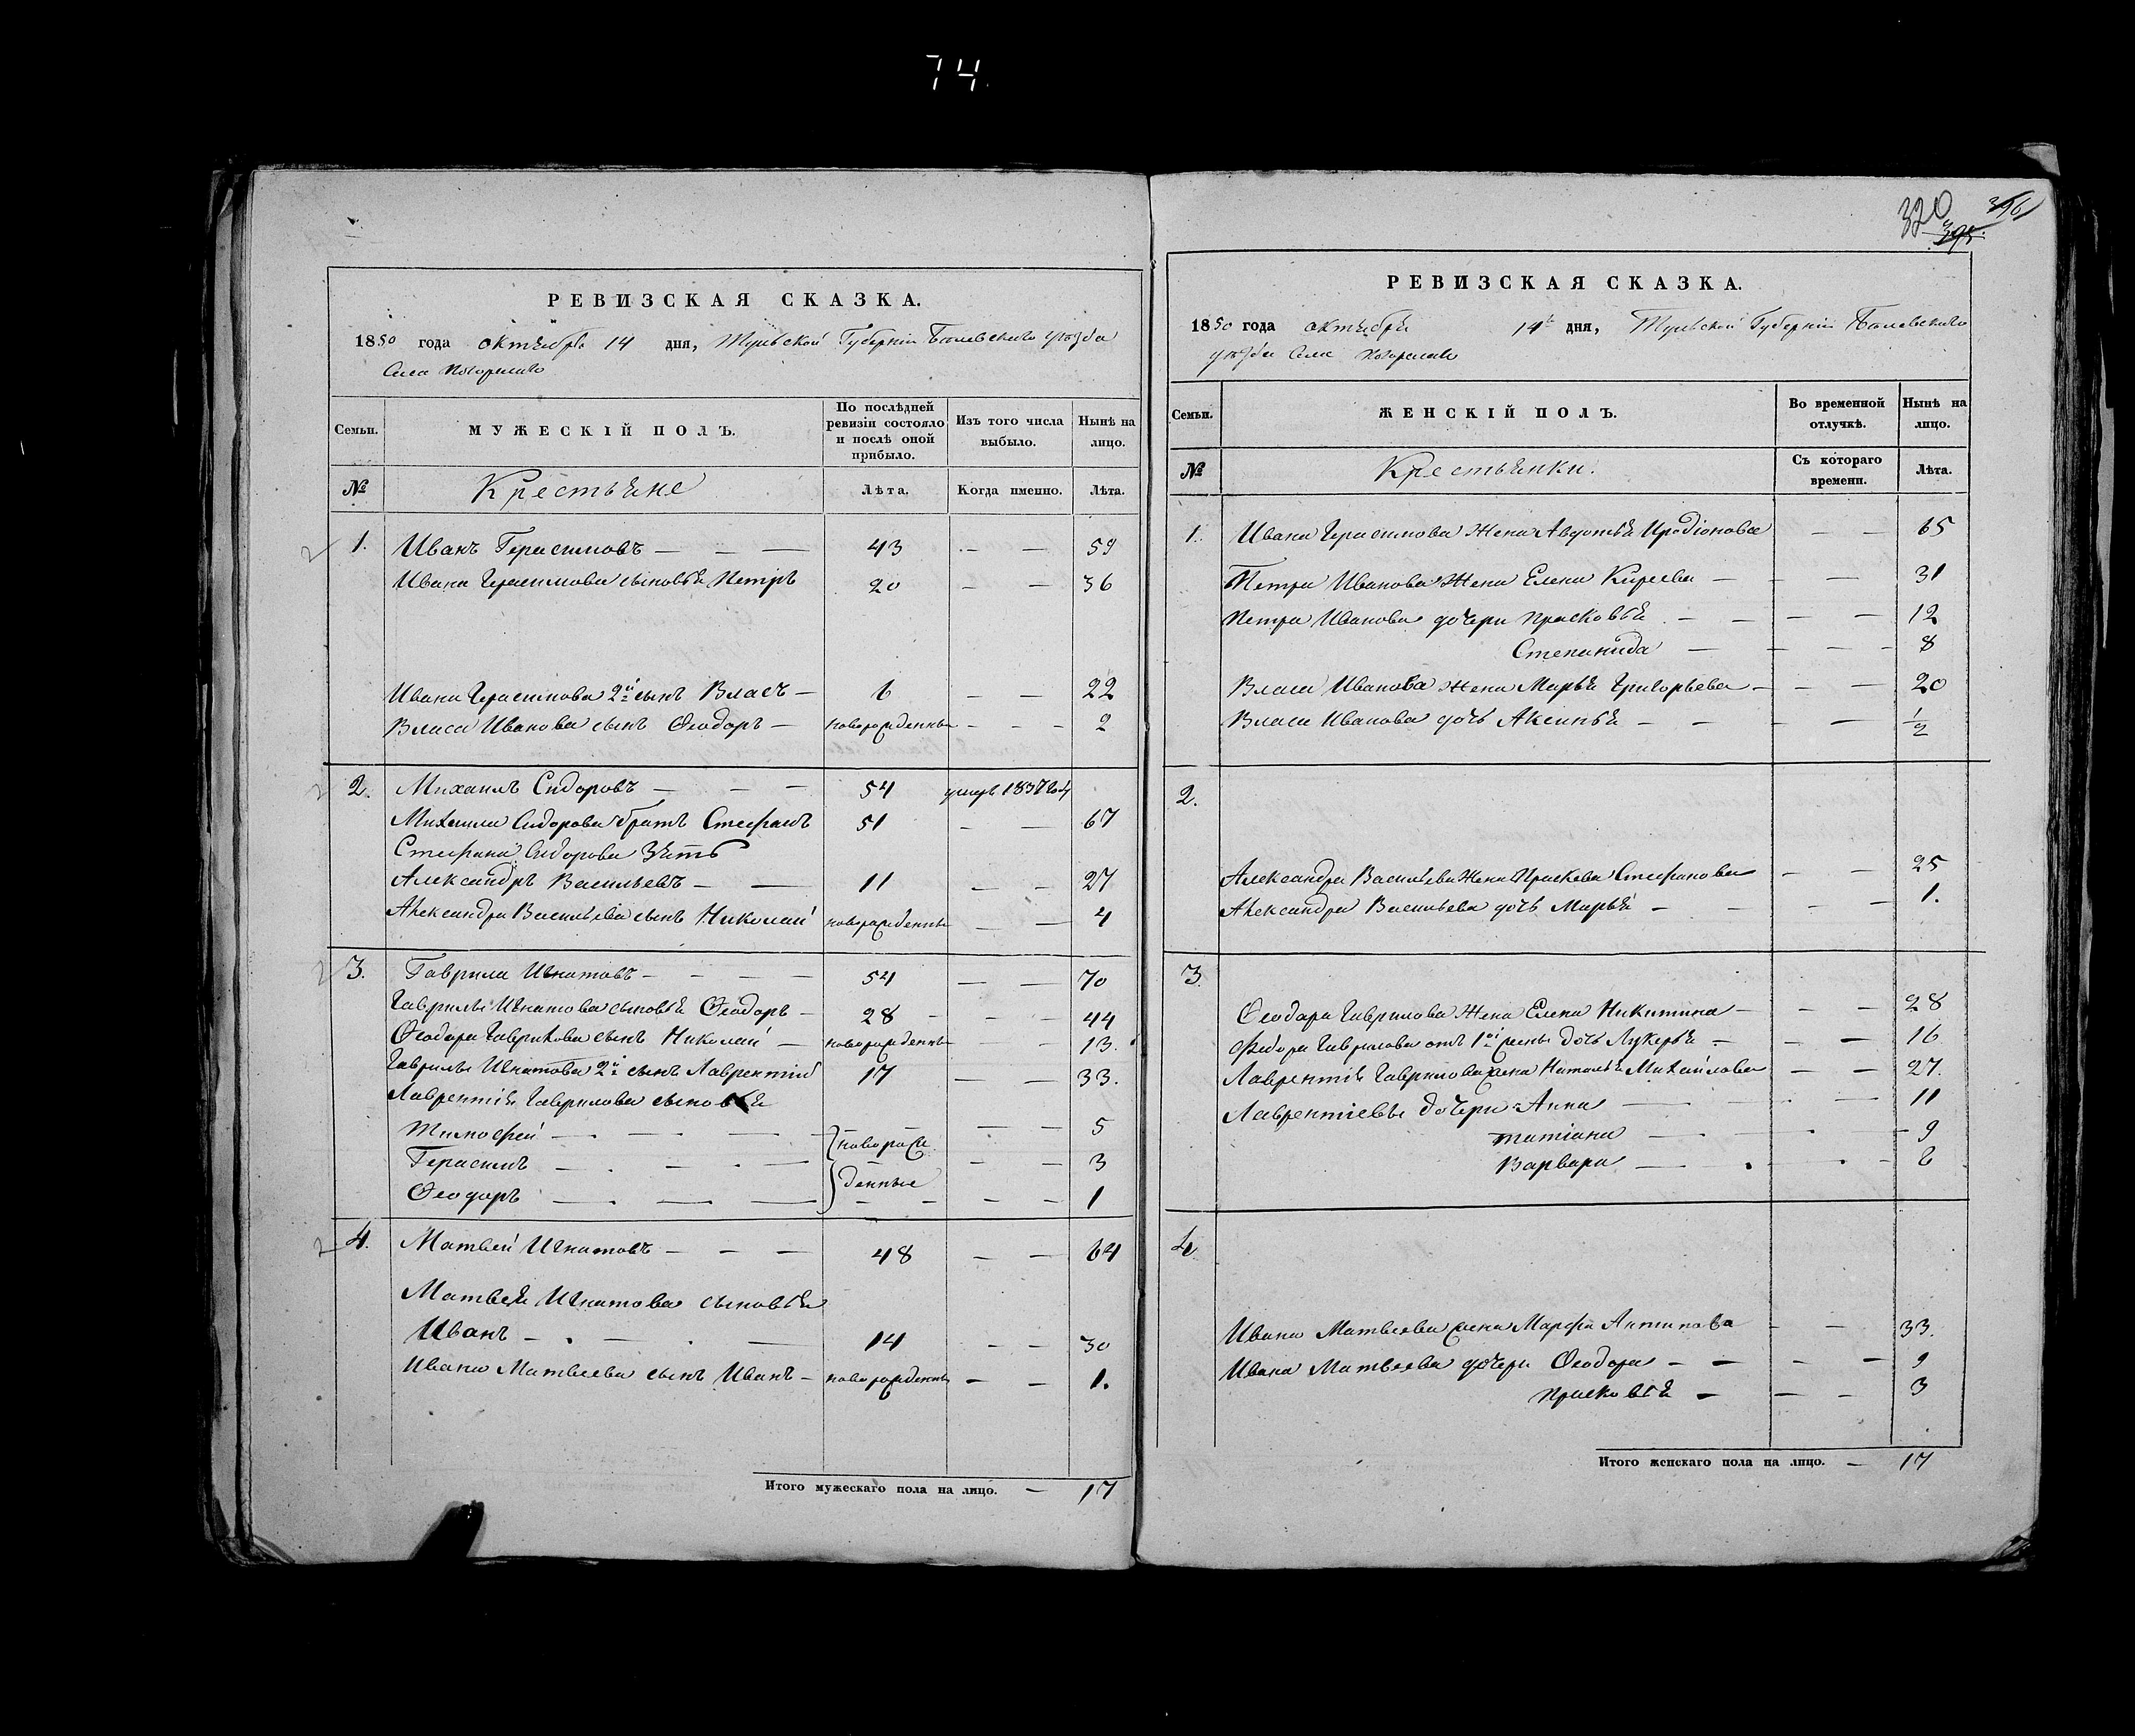 74.
320 396
395.
РЕВИЗСКАЯ СКАЗКА.
1850 года октября 14 дня, Тульской Губерніи Бѣлевскаго уѣзда
Села Погорѣлаго
Семьи.
МУЖЕСКІЙ ПОЛЪ.
По послѣдней ревизіи состояло и послѣ оной прибыло.
Изъ того числа выбыло.
Нынѣ на лицо.
№ Крестьяне Лѣта. Когда именно. Лѣта.
1. Иванъ Герасимовъ — — — 43 — — 59
Ивана Герасимова сыновья Петръ 20 — — 36
Ивана Герасимова 2й сынъ Власъ — 6 — — 22
Власа Иванова сынъ Ѳеодоръ — новорожденны — — — 2
2. Михаилъ Сидоровъ — — — 54 умеръ 1837 год
Михаила Сидорова братъ Стефанъ 51 — — 67
Стефана Сидорова Зять
Александръ Васильевъ — — 11 — — 27
Александра Васильева сынъ Николай новорожденны — — 4
3. Гаврила Игнатовъ — — — — 54 — — 70
Гаврилы Игнатова сыновья Ѳеодоръ — 28 — — — 44
Ѳеодора Гаврилова сынъ Николай — новорожденны — — 13.
Гаврилы Игнатова 2й сынъ Лаврентій 17 — — 33.
Лаврентія Гаврилова сыновья
Тимофей — — — — — — — 5
новорож
Герасимъ — — — — — 3
денные
Ѳеодоръ — — — — — — — 1
4. Матвей Игнатовъ — — — 48 — — 64
Матвея Игнатова сыновья
Иванъ — — — 14 — — 30
Ивана Матвеева сынъ Иванъ — новорожденны — — 1.
Итого мужескаго пола на лицо. — 17
РЕВИЗСКАЯ СКАЗКА.
1850 года октября 14 дня, Тульской Губерніи Бѣлевскаго
уѣзда Села Погорѣлаго
Семьи.
ЖЕНСКІЙ ПОЛЪ.
Во временной отлучкѣ.
Нынѣ на лицо.
№ Крестьянки. Съ котораго времени. Лѣта.
1. Ивана Герасимова Жена Авдотья Иродіонова — — 65
Петра Иванова Жена Елена Киреева — — — 31
Петра Иванова дочери Прасковья — — — — 12
Степанида — — — — 8
Власа Иванова Жена Марья Григорьева — — — 20
Власа Иванова дочь Аксинья — — — — 1/2
2.
Александра Васильева Жена Праскева Стефанова — — 25
Александра Васильева дочь Марья — — — — 1.
3.
Ѳеодора Гаврилова Жена Елена Никитина — — — 28
Федора Гаврилова отъ 1ой жены дочь Лукерья — — — 16
Лаврентія Гаврилова жена Наталья Михайлова — — 27.
Лаврентіевы дочери Анна — — — 11
татіана — — — 9
Варвара — — — 6
4
Ивана Матвеева жена Марфа Антипова — — 33.
Ивана Матвеева дочери Ѳеодора — — — — 9
Прасковья — — — 3
Итого женскаго пола на лицо. — 17